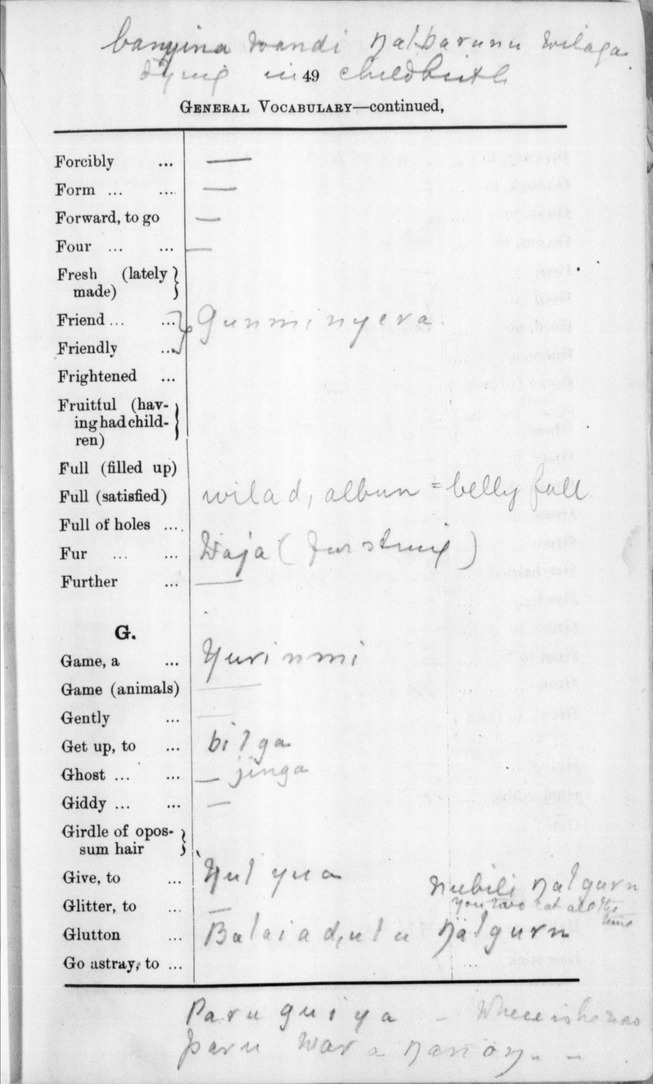 banyina wandi ŋalbarunu wilaga
dying in childbirth
49
GENERAL VOCABULARY—continued,
Forcibly ... —
Form ... ... —
Forward, to go —
Four ... ... —
Fresh (lately
made)
Friend ... ... Gunminyera
Friendly ...
Frightened ...
Fruitful (hav-
ing had child-
ren)
Full (filled up)
Full (satisfied) wilad, albun = belly full
Full of holes ...
Fur ... ... Waja (fur string)
Further ... —
G.
Game, a ... Yurinmi
Game (animals) —
Gently ... —
Get up, to ... bilga
Ghost ... ... — jinga
Giddy ... ... —
Girdle of opos-
sum hair
Give, to ... Yulyua nubili ŋalgurn
Glitter, to ... — you two eat all the time
Glutton ... Balaiad, ulu ŋalgurn
Go astray, to ...
Paru guiya - Where is he
paru war a